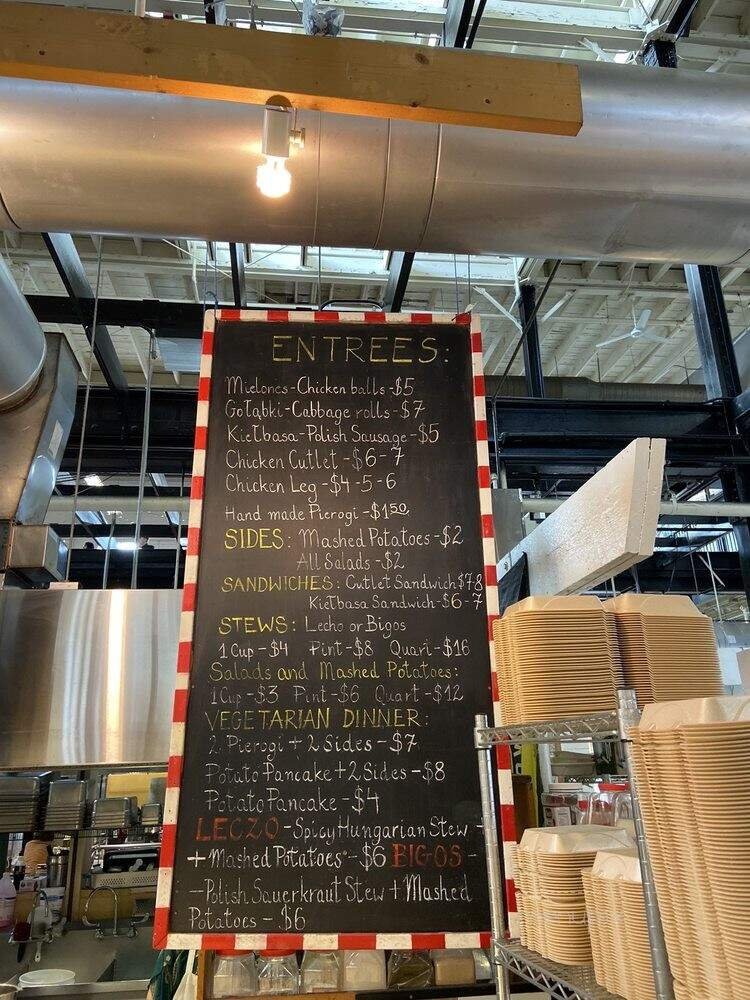 ENTREES:
Mielones-Chicken balls-$5
Gołąbki-Cabbage rolls-$7
Kiełbasa-Polish Sausage-$5
Chicken Cutlet-$6-7
Chicken Leg-$4-5-6
Hand made Pierogi-$1.50
SIDES: Mashed Potatoes-$2
All Salads-$2
SANDWICHES: Cutlet Sandwich $7 8
Kiełbasa Sandwich-$6-7
STEWS: Lecho or Bigos
1 Cup-$4 Pint-$8 Quart-$16
Salads and Mashed Potatoes:
1 Cup-$3 Pint-$6 Quart-$12
VEGETARIAN DINNER:
2 Pierogi+2 Sides-$7
Potato Pancake+2 Sides-$8
Potato Pancake-$4
LECZO-Spicy Hungarian Stew-
+Mashed Potatoes-$6 BIGOS-
-Polish Sauerkraut Stew+Mashed
Potatoes-$6